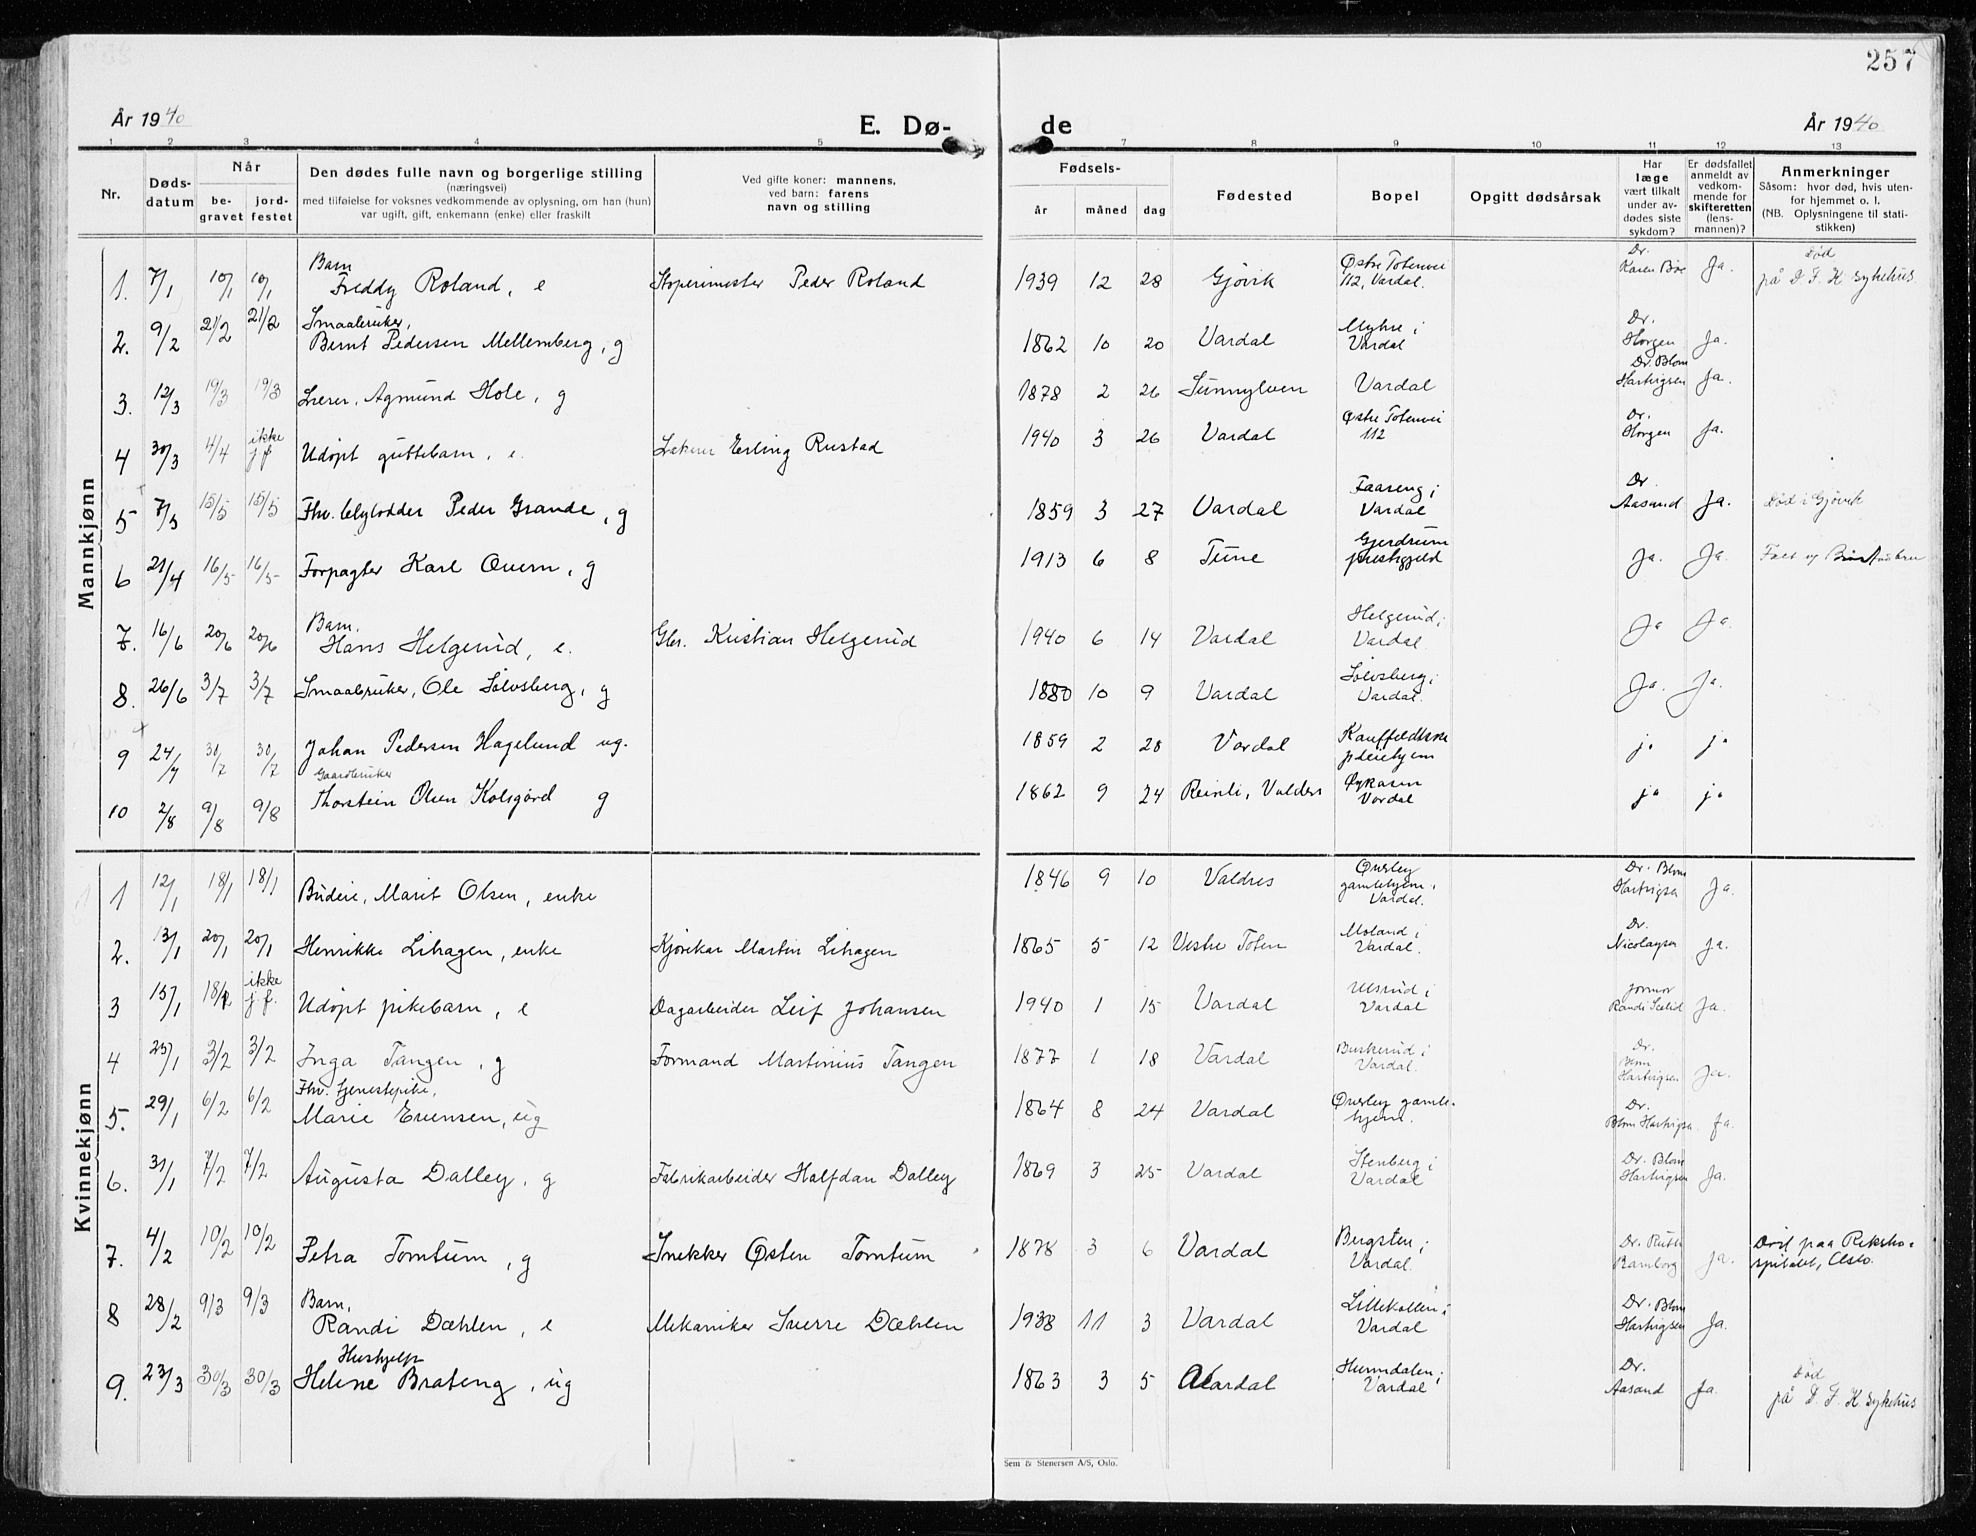 257
År 1940
E. Dø-
de
År 1940
1 2 3 4 5 7 8 9 10 11 12 13
Nr.
Døds-
datum
Når
be-
gravet
jord-
festet
Den dødes fulle navn og borgerlige stilling
(næringsvei)
med tilføielse for voksnes vedkommende av oplysning, om han (hun)
var ugift, gift, enkemann (enke) eller fraskilt
Ved gifte koner: mannens,
ved barn: farens
navn og stilling
Fødsels-
år måned dag
Fødested
Bopel
Opgitt dødsårsak
Har
læge
vært tilkalt
under av-
dødes siste
sykdom?
Er dødsfallet
anmeldt av
vedkom-
mende for
skifteretten
(lens-
mannen)?
Anmerkninger
Såsom: hvor død, hvis uten-
for hjemmet o. l.
(NB. Oplysningene til stati-
stikken)
Mannkjønn
1. 7/1 10/1 10/1 Barn Freddy Roland, e Peder Roland 1939 12 28 Gjøvik Østre Totenvei 112, Vardal. Dr. Karen Boe Ja. Død på D. F. K sykehus
2. 9/2 21/2 21/2 Smaabruker, Bernt Pedersen Mellemberg, g 1862 10 20 Vardal Myhre i Vardal Dr. Horgen Ja.
3. 12/3 19/3 19/3 Lærer, Agmund Hole, g 1878 2 26 Sunnylven Vardal Dr. Blom Hartvigsen Ja.
4 30/3 4/4 ikke j.f. Udøpt guttebarn, e. Erling Rustad 1940 3 26 Vardal Østre Totenvei 112 Dr. Horgen Ja.
5 7/5 15/5 15/5 Fhv. Peder Grande, g 1859 3 27 Vardal Faaseng i Vardal Dr. Aasand Ja. Død i Gjøvik
6 21/4 16/5 16/5 Forpagter Karl Quern, g 1913 6 8 Tune Gjerdrum prestegjeld Ja. Ja.
7. 16/6 20/6 20/6 Barn. Hans Helgerud, e. Gbr. Kristian Helgerud 1940 6 14 Vardal Helgerud i Vardal Ja Ja.
8. 26/6 3/7 3/7 Smaabruker, Ole Sølvsberg, g 1880 10 9 Vardal Sølvsberg i Vardal. Ja. Ja.
9 24/7 30/7 30/7 Johan Pedersen Hagelund ug. 1859 2 28 Vardal Kauffeldtske pleiehjem ja ja
10 2/8 9/8 9/8 Gaardbruker Thorstein Olsen Kolsgård g 1862 9 24 Reinli, Valders Øykasen Vardal ja ja
Kvinnekjønn
1 12/1 18/1 18/1 Budeie, Marit Olsen, enke 1846 9 10 Valdres Øverby gamlehjem, Vardal. Dr. Blom Hartvigsen Ja.
2. 13/1 20/1 20/1 Henrikke Lihagen, enke Kjørekar Martin Lihagen 1865 5 12 Vestre Toten Moland i Vardal. Dr. Nicolaysen Ja.
3 15/1 18/1 ikke j.f. Udøpt pikebarn, e Dagarbeider Leif Johansen 1940 1 15 Vardal Ulsrud i Vardal jormor Randi Ja.
4 25/1 3/2 3/2 Inga Tangen, g Formand Martinius Tangen 1877 1 18 Vardal Buskerud i Vardal. Dr. Blom Hartvigsen Ja.
5. 29/1 6/2 6/2 Fhv. tjenestepike, Marie Evensen, ug 1864 8 24 Vardal Øverby gamle- hjem. Dr. Blom Hartvigsen Ja.
6. 31/1 7/2 7/2 Augusta Dalley, g Fabrikarbeider Halfdan Dalley 1869 3 25 Vardal Stenberg i Vardal Dr. Blom Hartvigsen Ja.
7. 4/2 10/2 10/2 Petra Tomtum, g Snekker Østen Tomtum 1878 3 6 Vardal Bergsten i Vardal. Dr. Ruth Ramborg Ja. Død paa Riksho- spitalet, Oslo.
8 28/2 9/3 9/3 Barn, Randi Dæhlen, e Mekaniker Sverre Dæhlen 1938 11 3 Vardal Lillekollen i Vardal Dr. Blom Hartvigsen Ja.
9. 23/3 30/3 30/3 Hushjelp Helene Brateng, ug 1863 3 5 Vardal Hunndalen i Vardal Dr. Aasand Ja. Død på D. F. K sykehus
Sem & Stenersen A/S, Oslo.